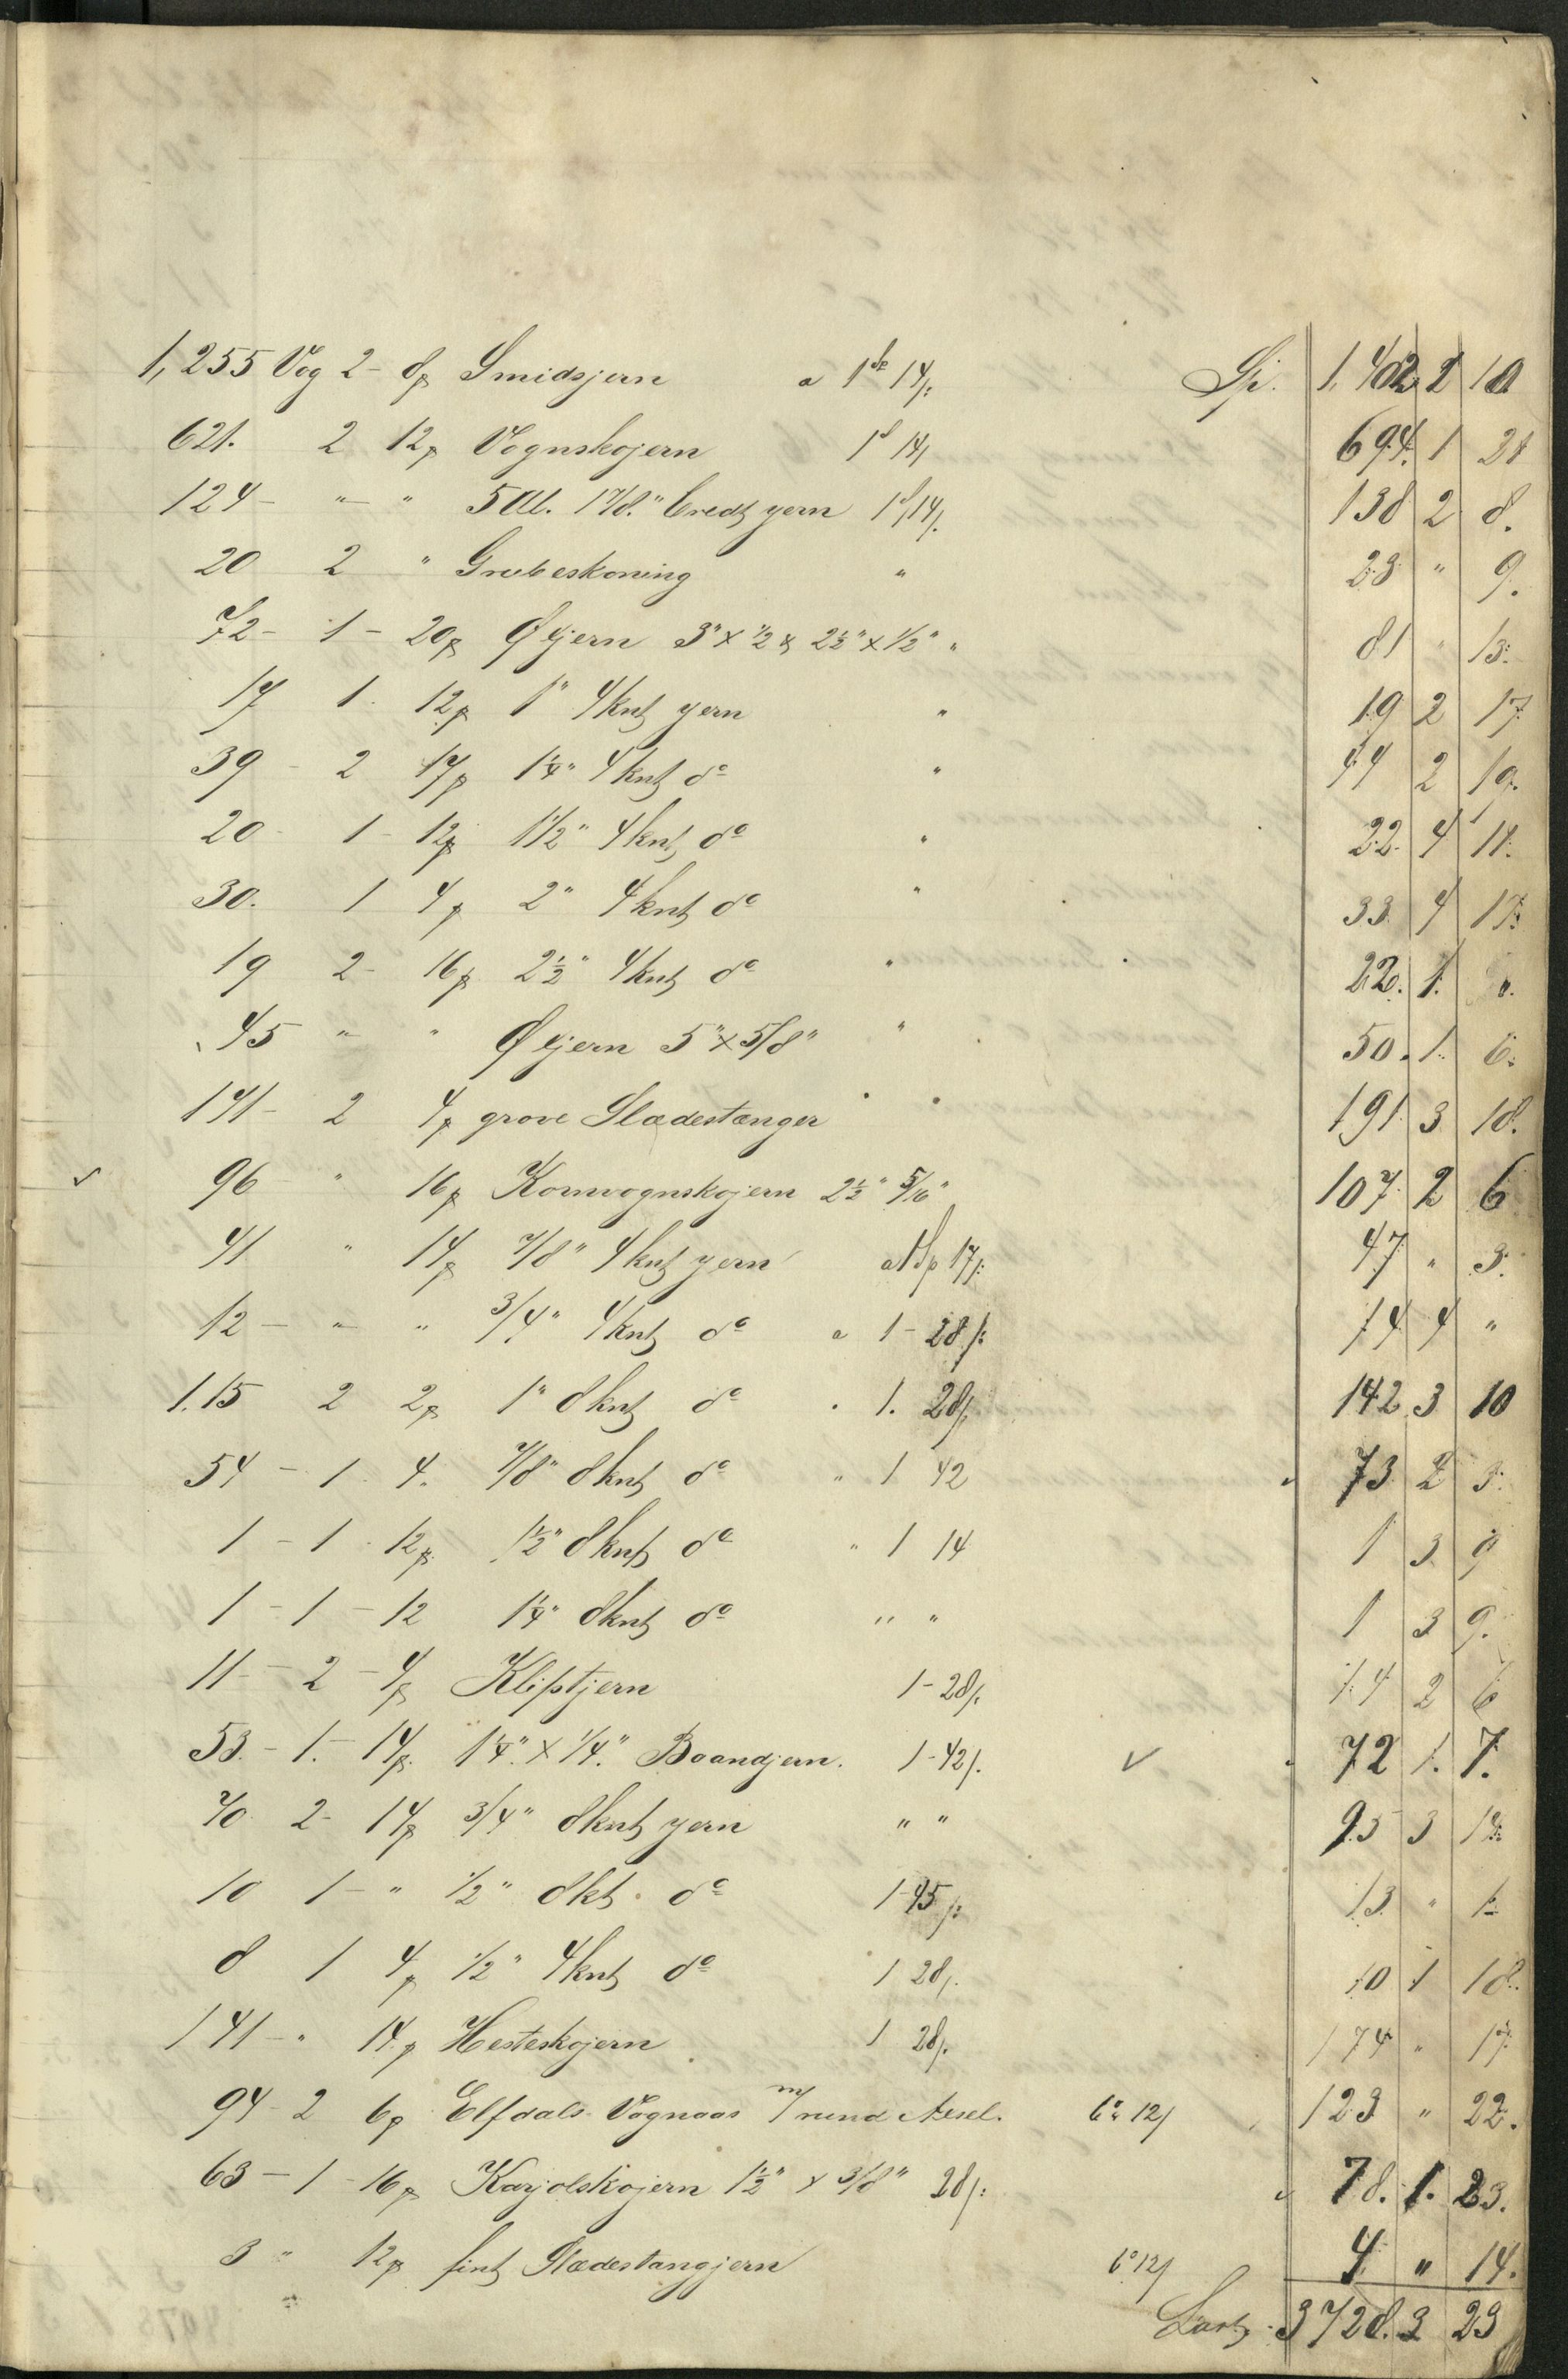 1,255 Vog 2 - 8 ℔ Smidsjern a 1 14/: Sp. 1,402 2 10
621. 2 12 ℔ Vognskojern 1 14/ 694. 1 21
124 - " - " 5 All. 1 7/8." bredt jern 1 14/. 138 2 8.
20 2 " Grubeskoning " 23 " 9.
72 - 1 - 20 ℔ Øxjern 3" x 1/2 & 2 1/2" x 1/2" " 81 " 13.
17 1. 12 ℔ 1" 4knt jern " 19 2 17
39 - 2 17 ℔ 1 1/4" 4knt do " 44 2 19.
20 - 1 - 12 ℔ 1 1/2" 4knt do " 22. 4 11.
30. 1 4 ℔ 2" 4knt do " 33. 4 17.
19 2 - 16 ℔ 2 1/2" 4knt do " 22. 1. ".
45 " " Øxjern 5" x 5/8" " 50. 1. 6.
171 - 2 4 ℔ grove Slædestænger " 191. 3 18.
96 - " 16 ℔ Kornvognskojern 2 1/2" 5/16" 107. 2 6
41 " 14 ℔ 7/8" 4knt jern a 1 Sp 17/: 47 " 3.
12 - " - " 3/4" 4knt do a 1 - 28/: 14 4 "
1.15 2 2 ℔ 1" 8knt do " 1. 28/. 142 3 10
54 - 1 4. 7/8" 8knt do " 1 42 73 2 3.
1 - 1 - 12 ℔ 1 1/2" 8knt do " 1 14 1 3 9
1 - 1 - 12 1 1/4" 8knt do " " 1 3 9.
11 - 2 - 4 ℔ Klipstjern 1 - 28/. 14 2 6
53. - 1. - 14 ℔. 1 1/4." x 1/4." Baandjern. 1 - 42/. 72 1. 7.
70 2 - 14 ℔ 3/4" 8knt jern " " 95 3 12.
10 1 - " 1/2" 8kt. do 1 - 45/: 13. " 1.
8 1 4 ℔ 1/2" 4knt do 1 28/. 10 1 18.
141 - " 14 ℔ Hesteskojern 1 28/. 174 " 17
94 - 2 6 ℔ Elfdals Vognaas m/ rund Aksel. 6" 12/ 123 " 22.
63 - 1 - 16 ℔ Karjolskojern 1 1/2" x 3/8" 28/: 78. 1. 23.
3 " 12 ℔ fint Slædestangjern 6" 12/ 4 " 14.
Lart 3728. 3 23